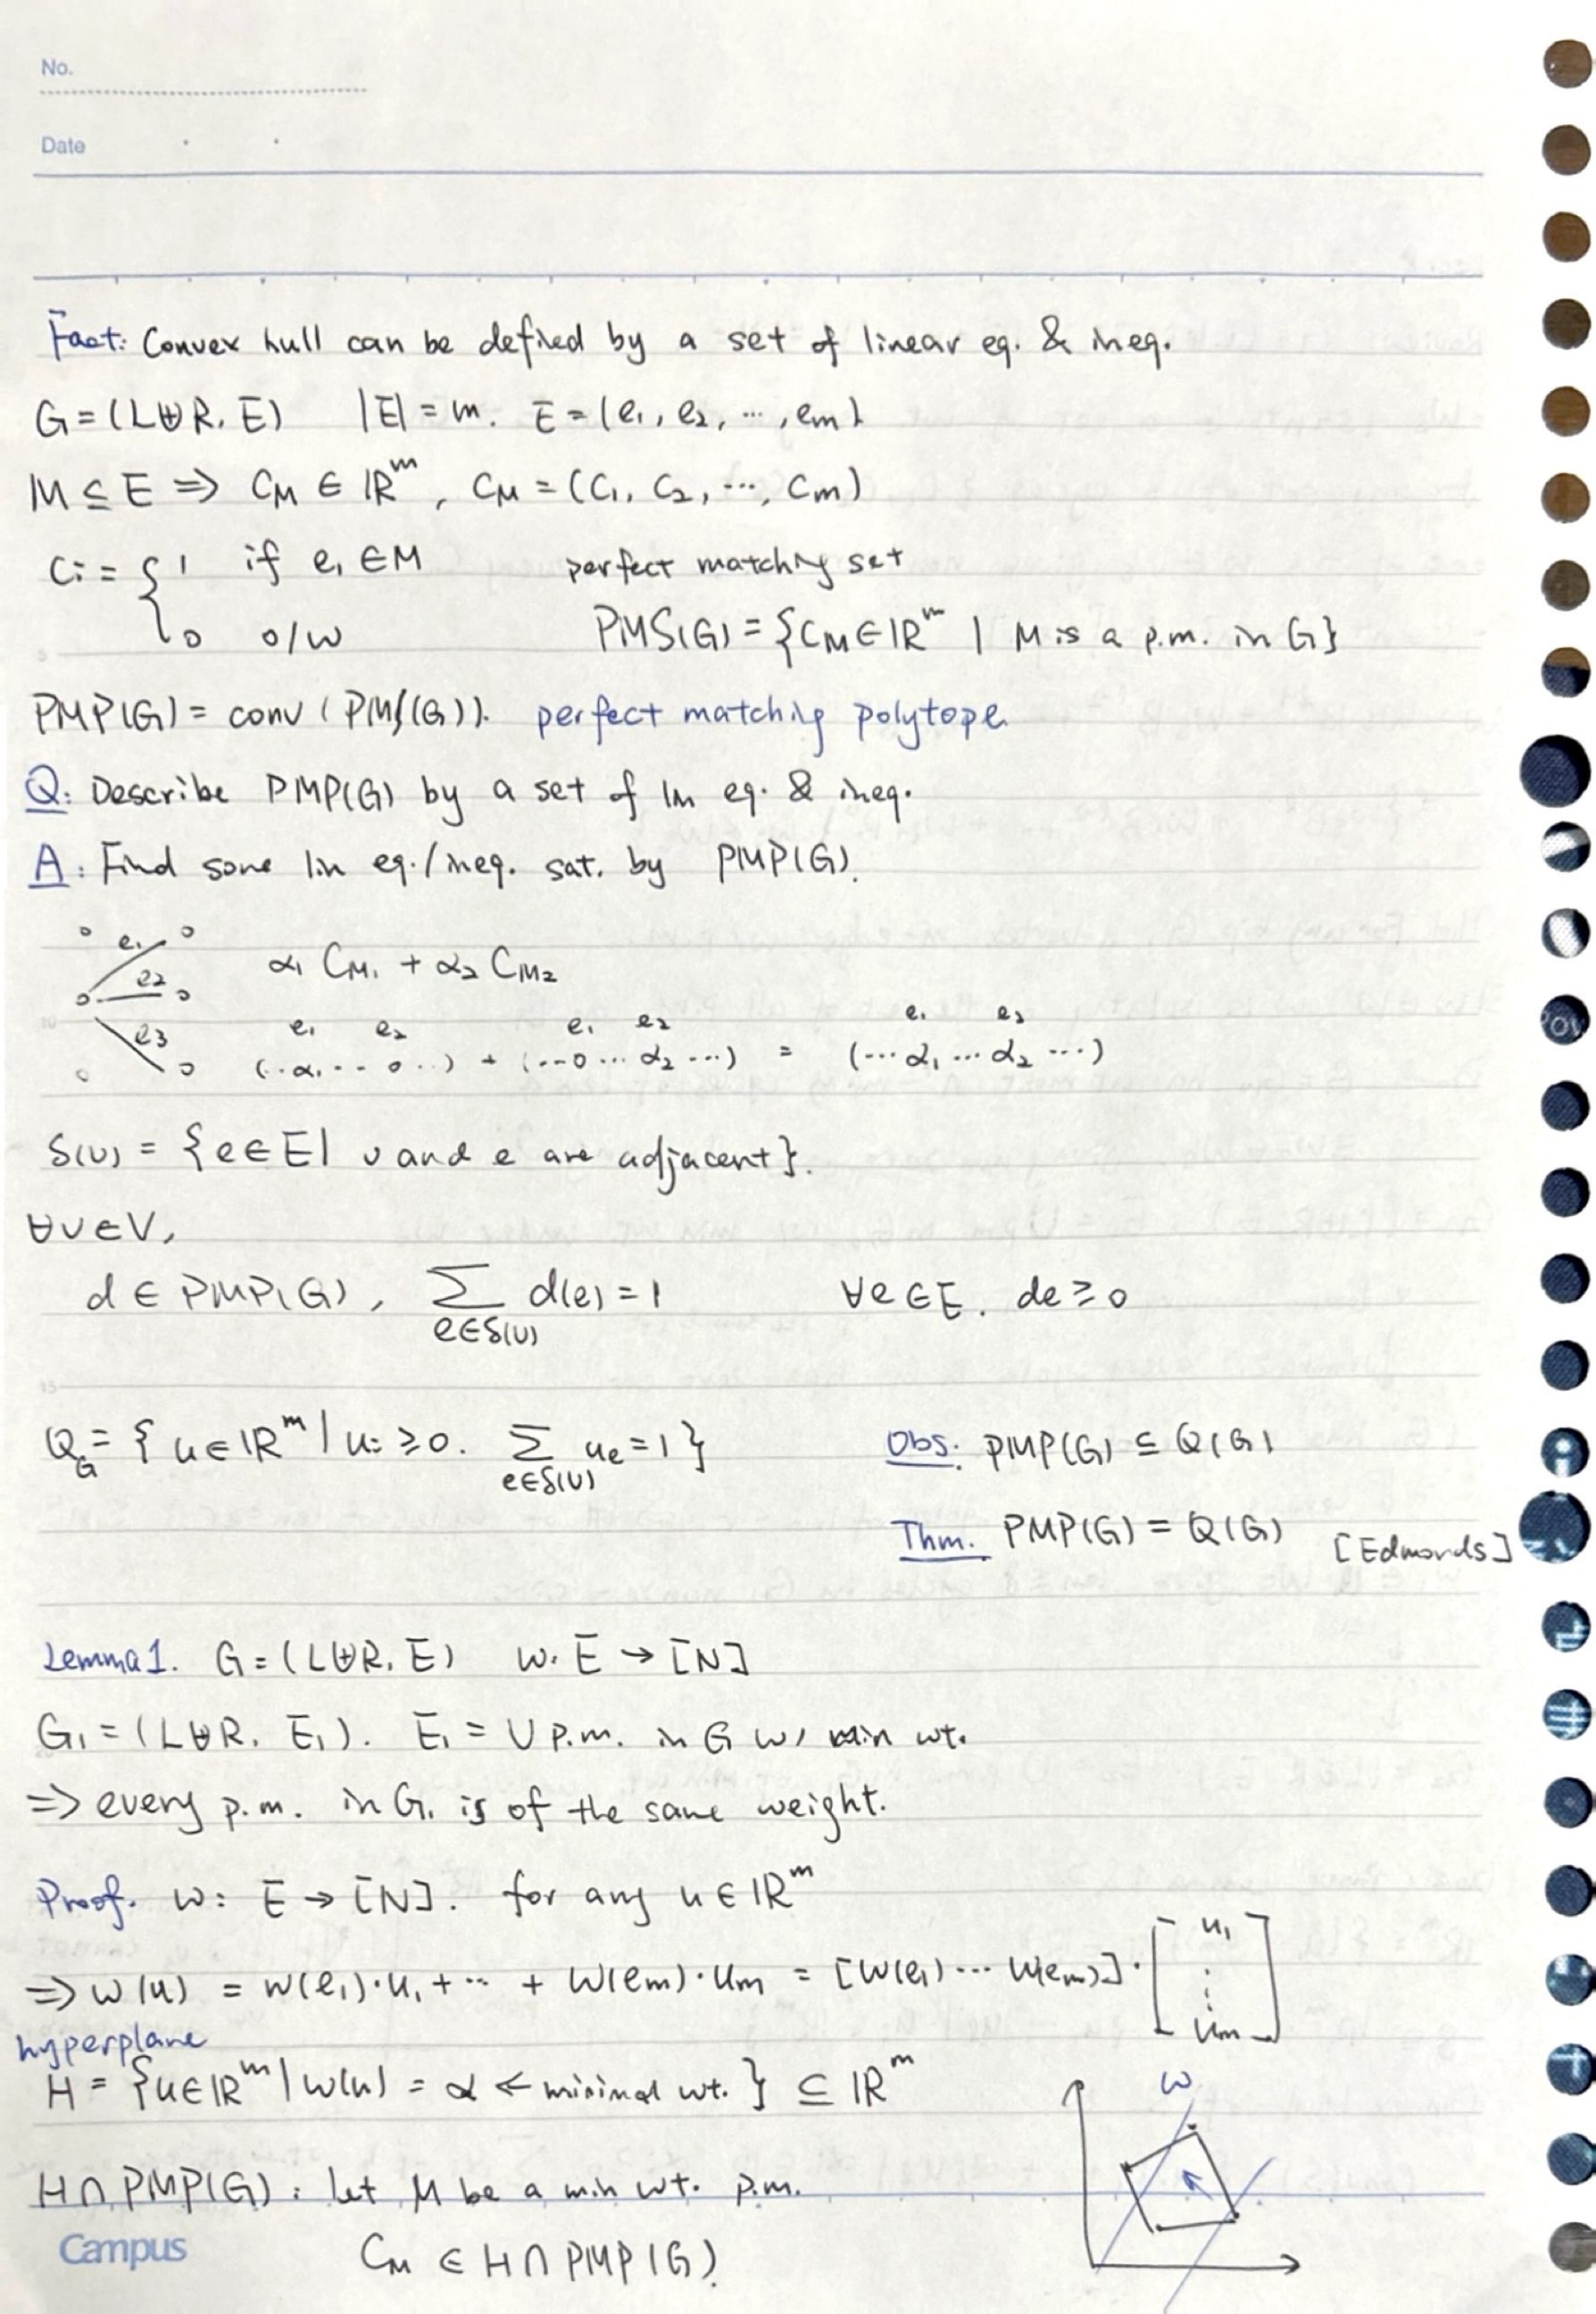 No.
Date
Fact: Convex hull can be defined by a set of linear eq. & ineq.
G = (L⊎R, E) |E| = m. E = {e₁, e₂, ⋯, eₘ}
M ⊆ E ⇒ C_M ∈ ℝᵐ, C_M = (C₁, C₂, ⋯, Cₘ)
Cᵢ = { 1 if e₁ ∈ M perfect matching set
0 o/w PMS(G) = {C_M ∈ ℝᵐ | M is a p.m. in G}
PMP(G) = conv(PMS(G)). perfect matching polytope
Q: Describe PMP(G) by a set of lin eq. & ineq.
A: Find some lin eq./ineq. sat. by PMP(G).
e₁ e₂ α₁ C_M₁ + α₂ C_M₂
e₃ e₁ e₂ e₁ e₂ e₁ e₂
(⋅α₁⋅⋅⋅0⋅⋅) + (⋯0⋯α₂⋯) = (⋯α₁⋯α₂⋯)
δ(v) = {e∈E | v and e are adjacent}.
∀v∈V,
d ∈ PMP(G), ∑ d(e) = 1 ∀e∈E. de ≥ 0
e∈δ(v)
Q_G = { u∈ℝᵐ | uᵢ ≥ 0. ∑ uₑ = 1 } Obs: PMP(G) ⊆ Q(G)
e∈δ(v)
Thm. PMP(G) = Q(G) [Edmonds]
Lemma 1. G = (L⊎R, E) w: E → [N]
G₁ = (L⊎R, E₁). E₁ = ∪ p.m. in G w/ min wt.
⇒ every p.m. in G₁ is of the same weight.
Proof. w: E → [N]. for any u∈ℝᵐ
⇒ w(u) = w(e₁)·u₁ + ⋯ + w(eₘ)·uₘ = [w(e₁) ⋯ w(eₘ)] · [u₁ ⋮ uₘ]
hyperplane
H = {u∈ℝᵐ | w(u) = α ← minimal wt. } ⊆ ℝᵐ
w
H∩PMP(G): let M be a min wt. p.m.
Campus C_M ∈ H∩PMP(G).